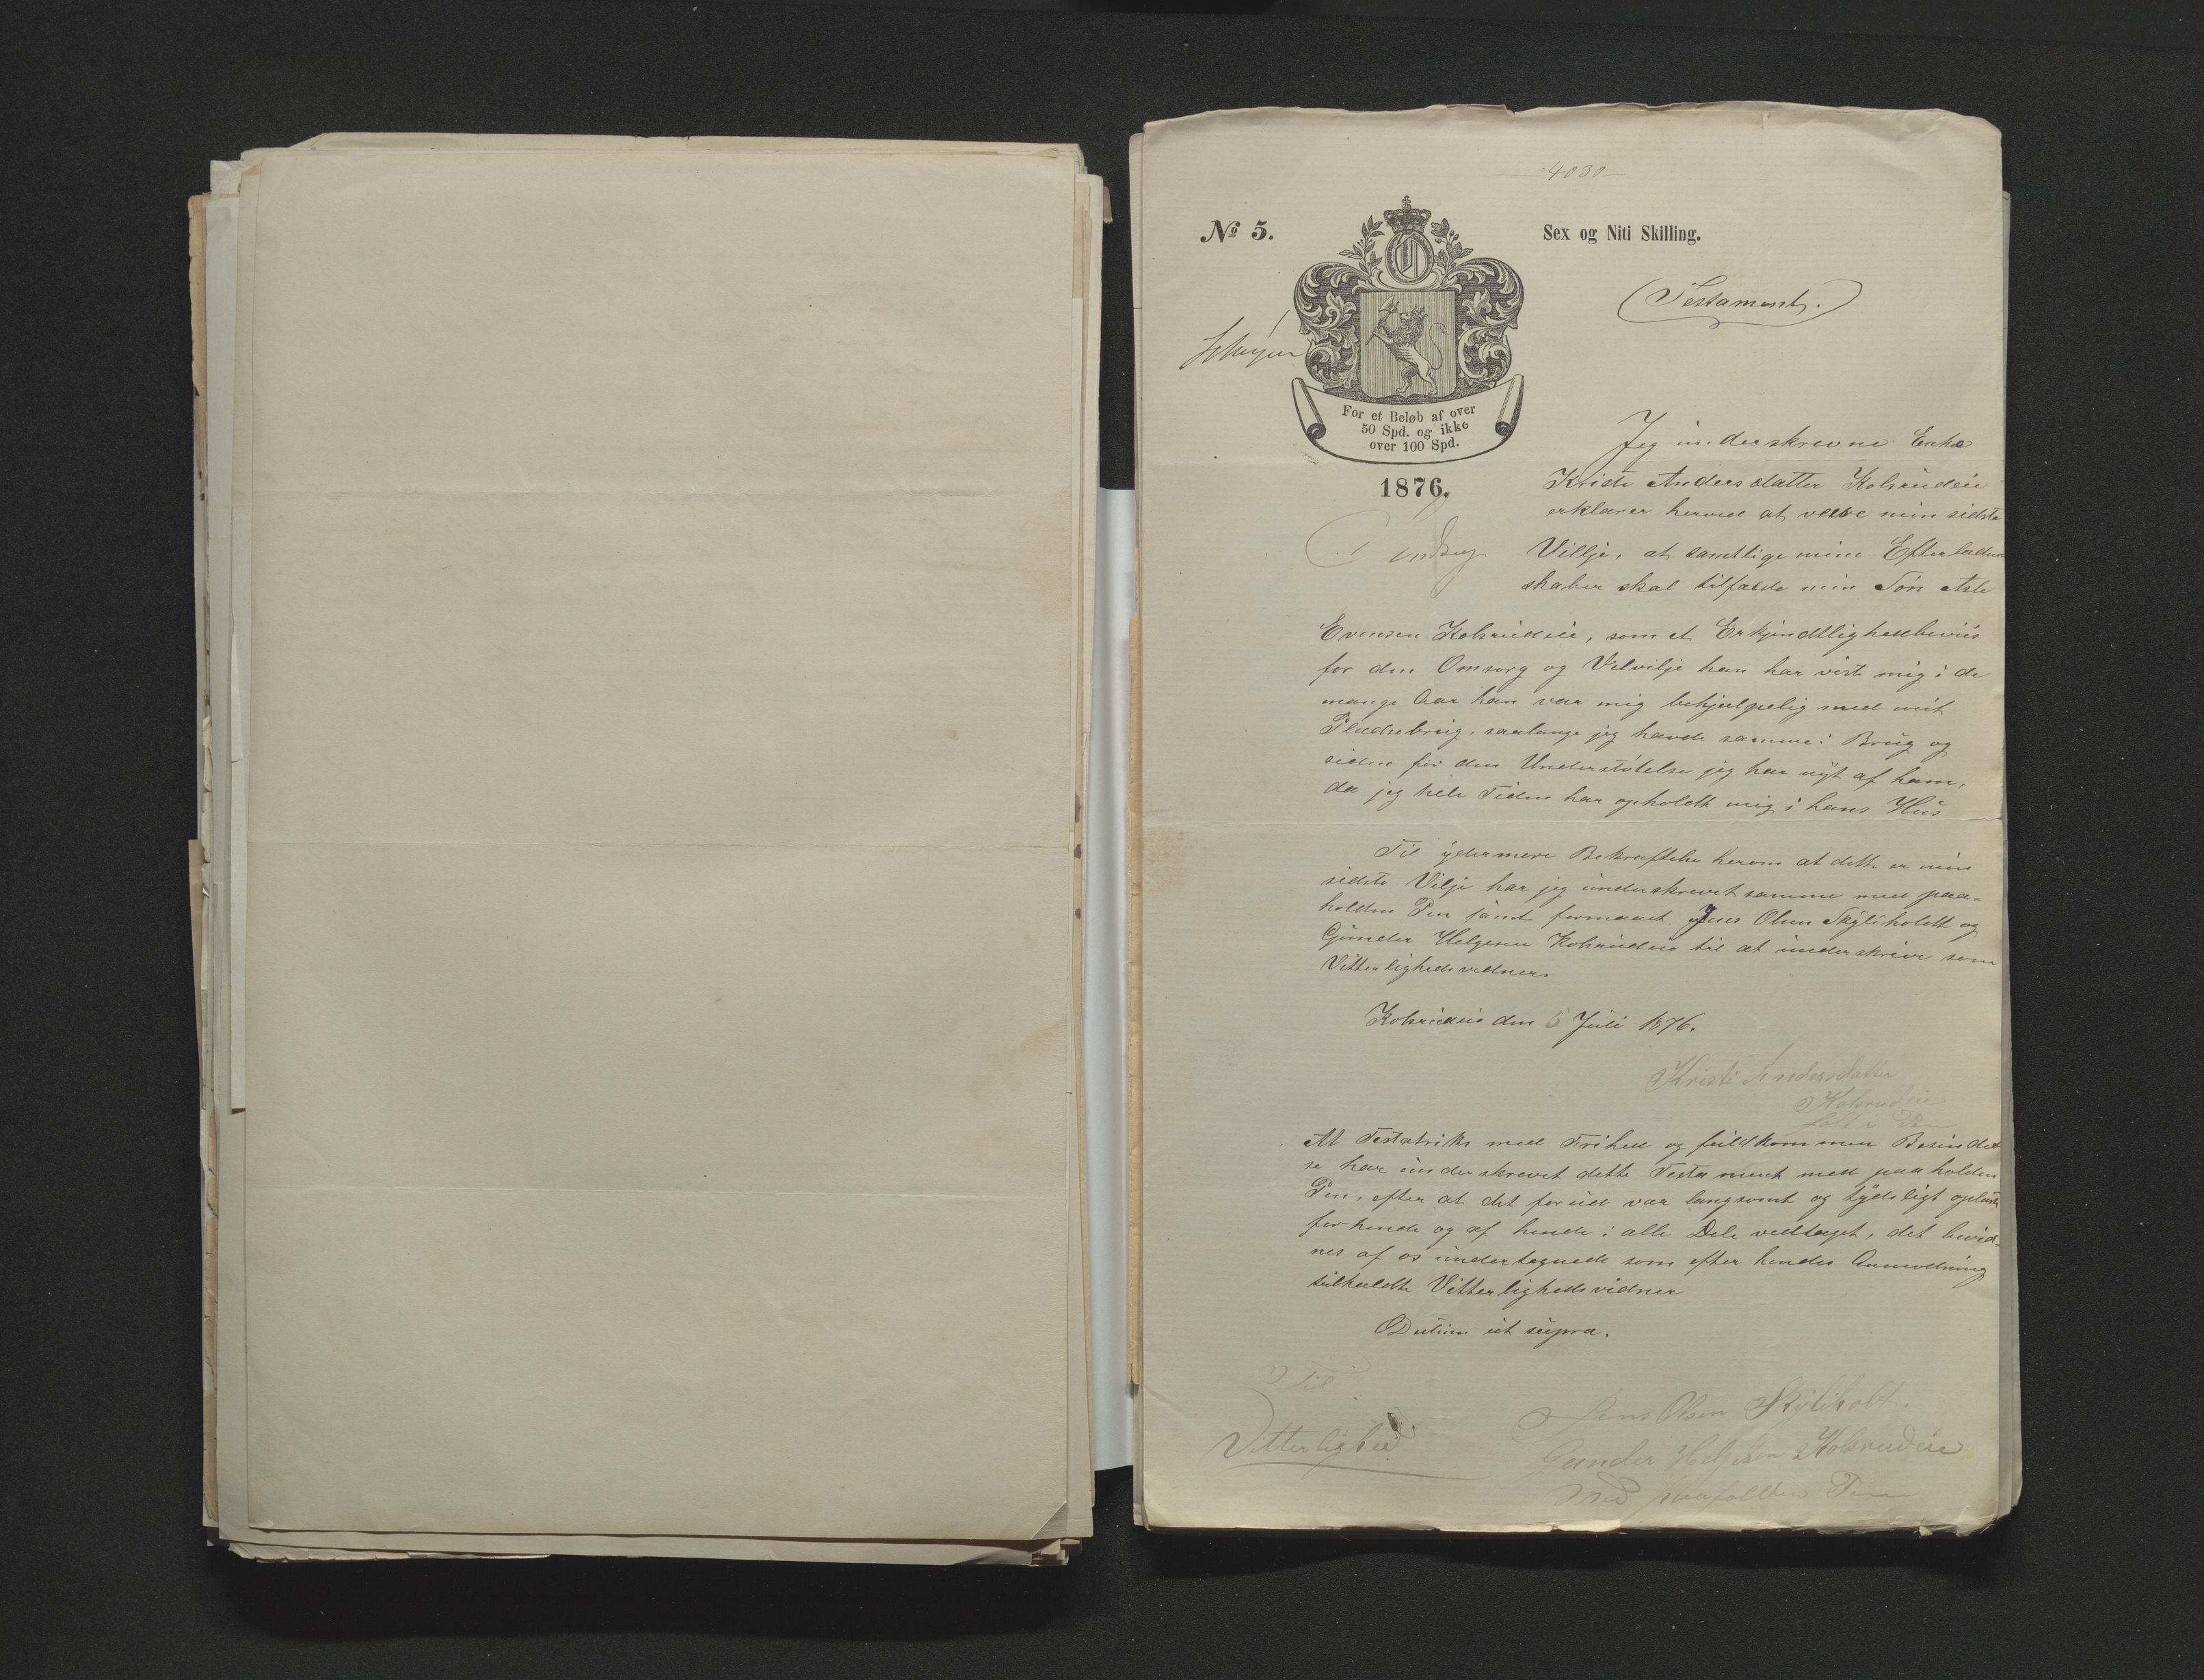 4030
№ 5.
Sex og Niti Skilling.
(Testament.)
For et Beløb af over
50 Spd. og ikke
over 100 Spd.
1876.
Jeg underskrevne Enke
Kristi Andersdatter Kolsrudeie
erklærer herved at være min sidste
Villje, at samtlige mine Efterladen
skaber skal tilfalde min Søn Asle
Evensen Kolsrudeie, som et Erkjendtlighedbeviis
for den Omsorg og Velvilje han har vist mig i de
mange Aar han var mig behjælpelig med mit
Pladsebrug, saalænge jeg havde samme i Brug og
siden for den Understøtelse jeg har nyt af ham,
da jeg hele Tiden har opholdt mig i hans Hus
Til ydermere Bekræftelse herom at dette er min
sidste Vilje har jeg underskrevet samme med paa-
holden Pen samt formaaet Jens Olsen Skjøliholdt og
Gunder Helgesen Kolsrudeie til at underskrive som
Vitterlighedsvidner.
Kolsrudeie den 5 Juli 1876.
Kristi Andersdatter
Kolsrudeie
Pen
At Testatriks med Frihed og fuldkommen Besindel
se har underskrevet dette Testament med paaholden
Pen, efter at det forud var langsomt og tydeligt oplæst
for hende og af hende i alle Dele vedtaget, det bevid-
nes af os undertegnede som efter hendes Anmodning
tilkaldte Vitterlighedsvidner
Datum ut supra.
Til
Vitterlighed
Jens Olsen Skjøliholt.
Gunder Helgesen Kolsrudeie
med paaholden Pen